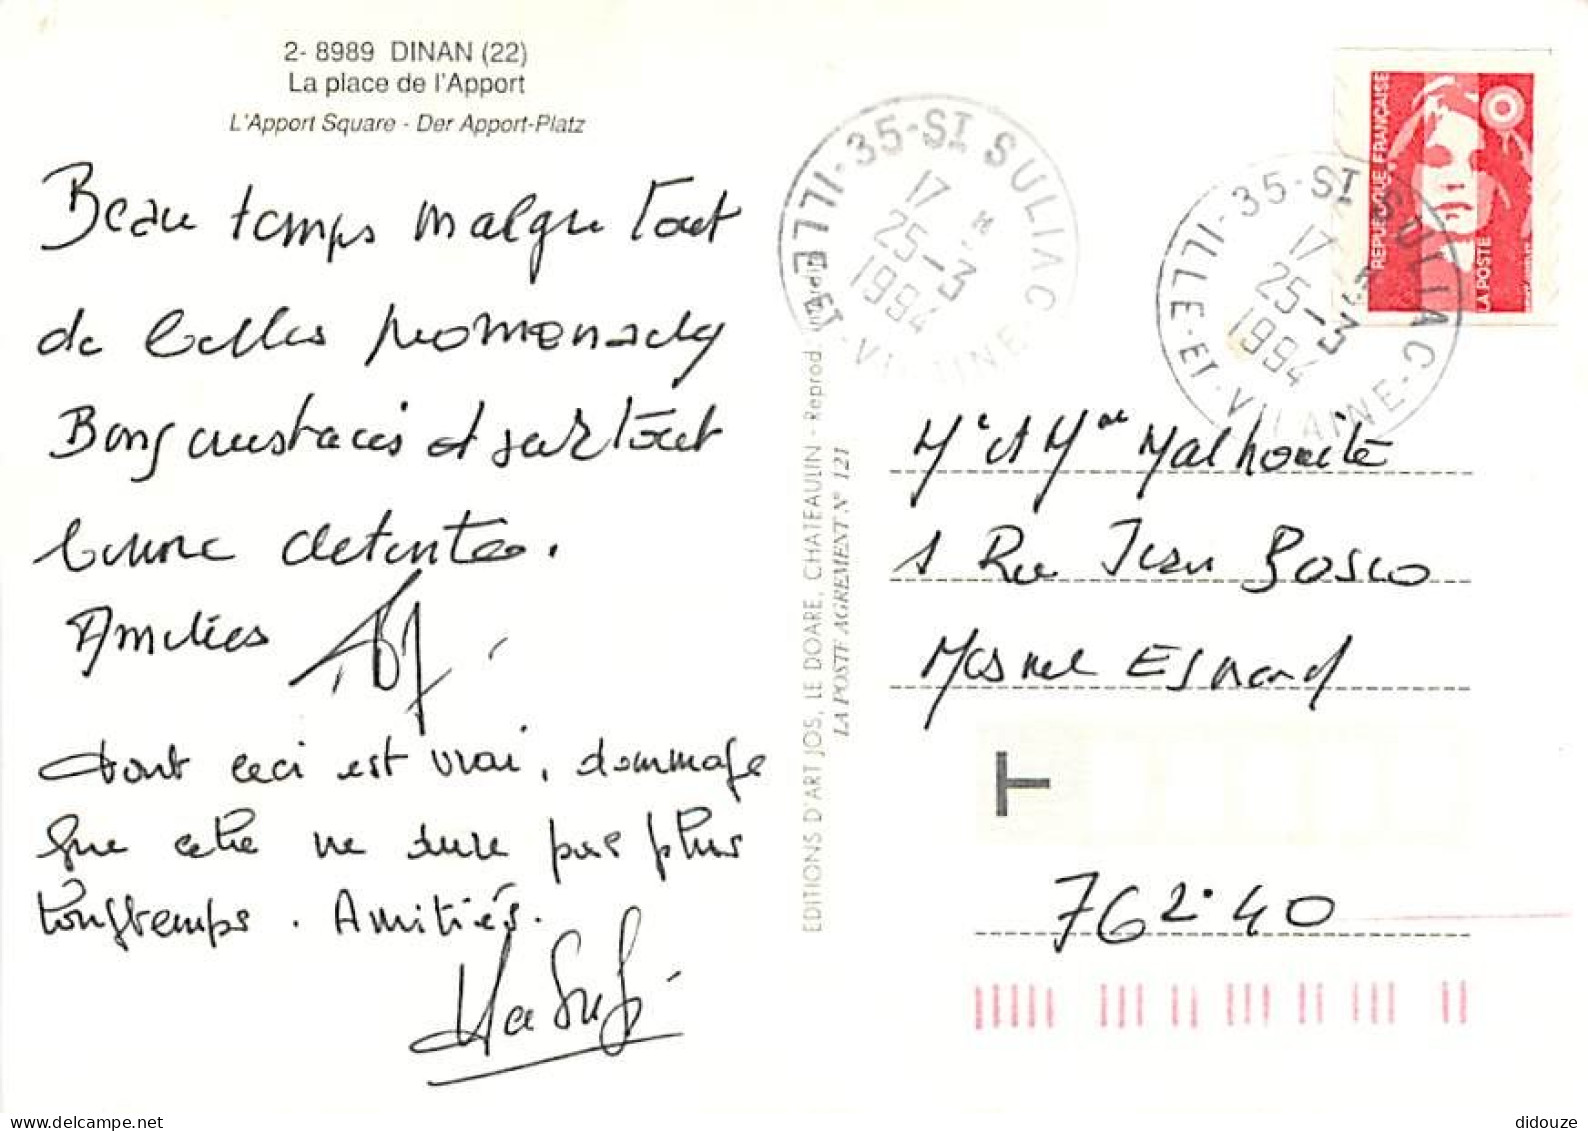 2- 8989 DINAN (22)
La place de l'Apport
L'Apport Square - Der Apport-Platz
Beau temps malgre tout
de belles promenades
Bons crustacés et surtout
bonne detente.
Amitiés
dont ceci est vrai, dommage
que cela ne dure pas plus
longtemps. Amitiés.
EDITIONS D'ART JOS, LE DOARE, CHATEAULIN - Reprod. interdite
LA POSTE AGREMENT N° 121
35-ST SULIAC
17 H
25-3
1994
ILLE-ET-VILAINE
35-ST SULIAC
17 H
25-3
1994
ILLE-ET-VILAINE
REPUBLIQUE FRANÇAISE
LA POSTE
Mr et Mme Malhouité
1 Rue Jean Bosco
Mesnil Esnard
T
76240
didouze